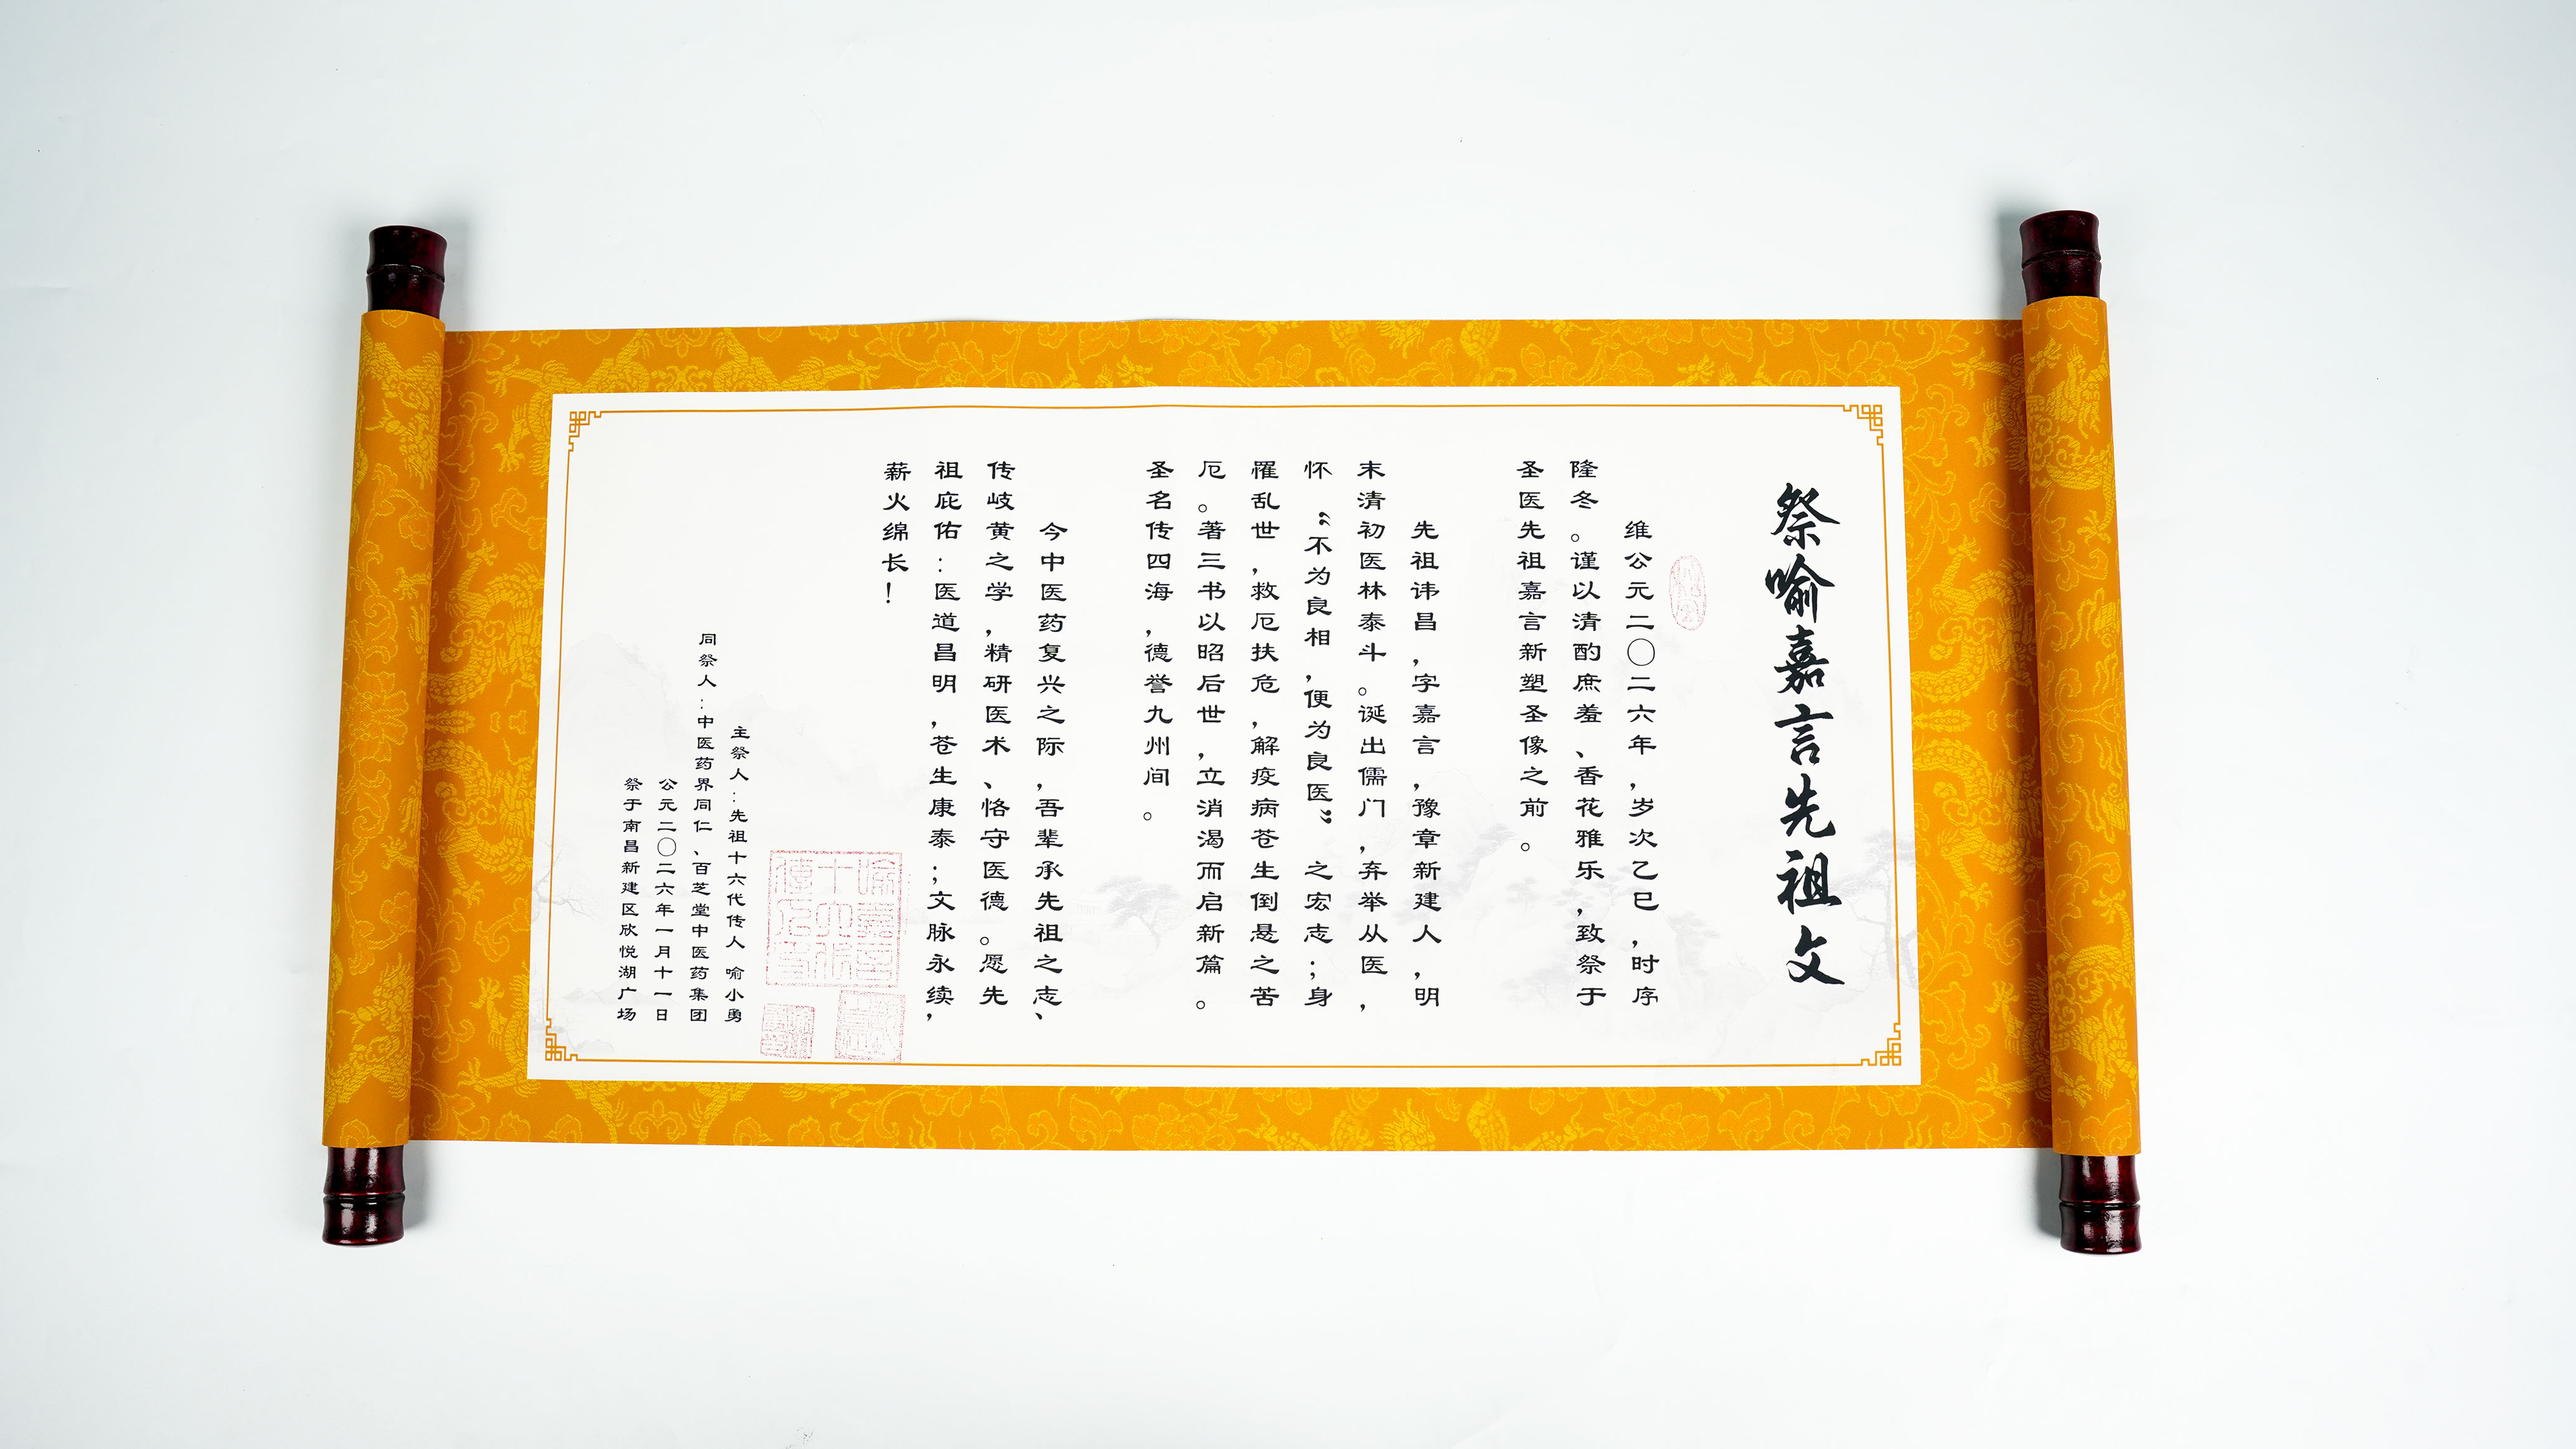 祭喻嘉言先祖文
维公元二〇二六年，岁次乙巳，时序
隆冬。谨以清酌庶羞、香花雅乐，致祭于
圣医先祖嘉言新塑圣像之前。
先祖讳昌，字嘉言，豫章新建人，明
末清初医林泰斗。诞出儒门，弃举从医，
怀“不为良相，便为良医”之宏志；身
罹乱世，救厄扶危，解疫病苍生倒悬之苦
厄。著三书以昭后世，立消渴而启新篇。
圣名传四海，德誉九州间。
今中医药复兴之际，吾辈承先祖之志、
传岐黄之学，精研医术、恪守医德。愿先
祖庇佑：医道昌明，苍生康泰；文脉永续，
薪火绵长！
主祭人：先祖十六代传人 喻小勇
同祭人：中医药界同仁、百芝堂中医药集团
公元二〇二六年一月十一日
祭于南昌新建区欣悦湖广场